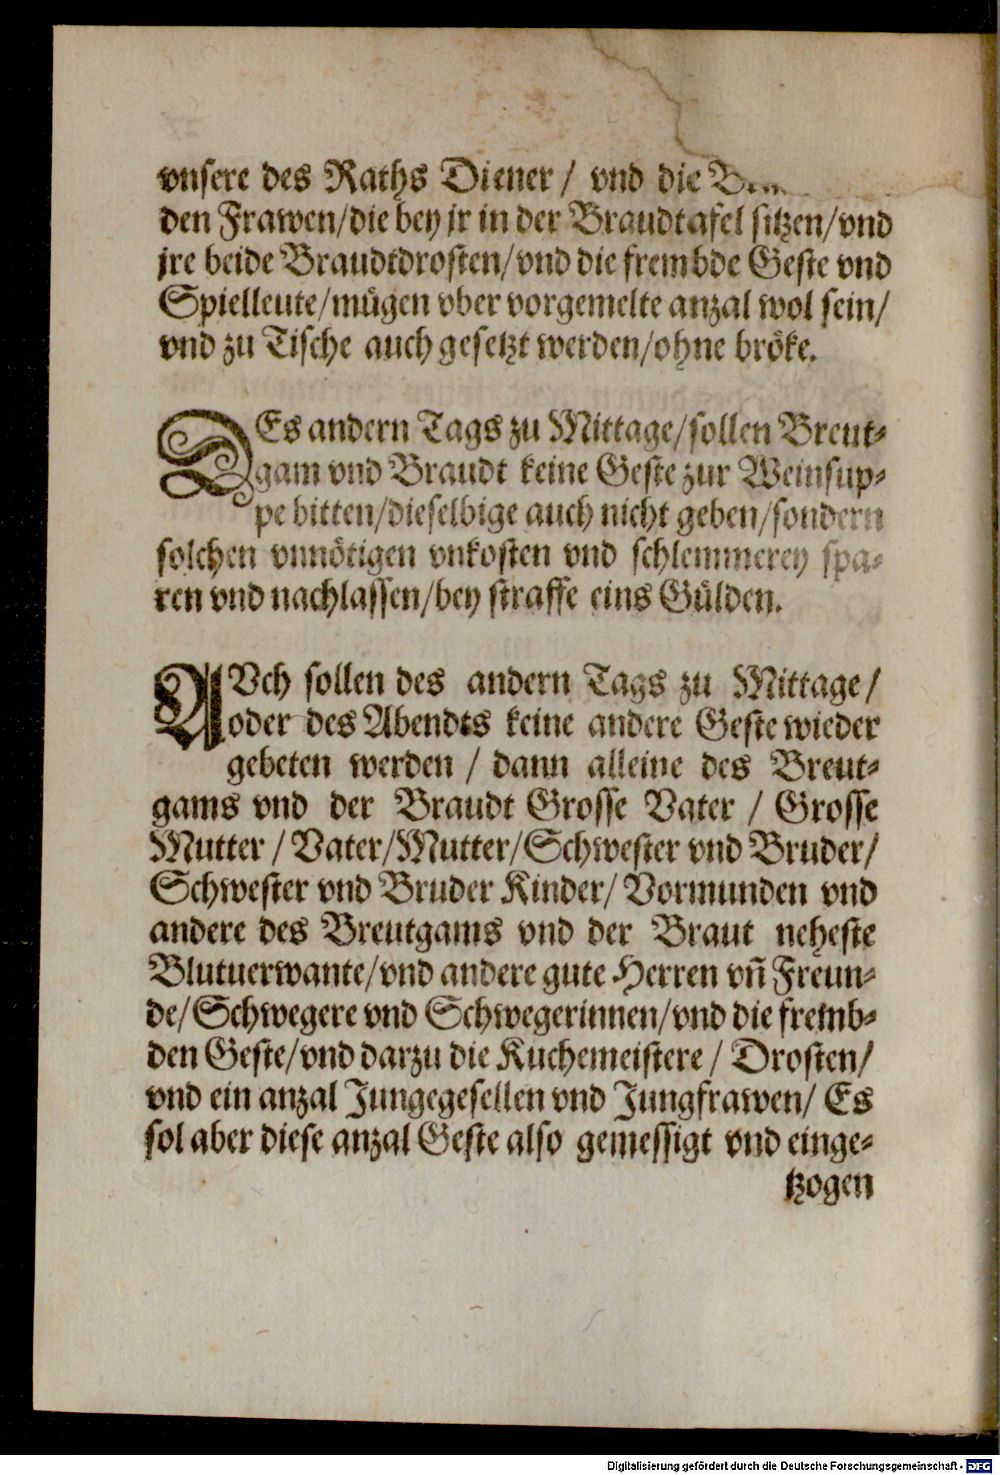 vnsere des Raths Diener / vnd die
den Frawen/die bey jr in der Braudtafel sitzen/vnd
jre beide Braudtdrosten/vnd die frembde Geste vnd
Spielleute/mügen vber vorgemelte anzal wol sein/
vnd zu Tische auch gesetzt werden/ohne bröke.
DEs andern Tags zu Mittage/sollen Breut-
gam vnd Braudt keine Geste zur Weinsup-
pe bitten/dieselbige auch nicht geben/sondern
solchen vnnötigen vnkosten vnd schlemmerey spa-
ren vnd nachlassen/bey straffe eins Gülden.
AVch sollen des andern Tags zu Mittage/
oder des Abendts keine andere Geste wieder
gebeten werden / dann alleine des Breut-
gams vnd der Braudt Grosse Vater / Grosse
Mutter / Vater/Mutter/Schwester vnd Bruder/
Schwester vnd Bruder Kinder/ Vormunden vnd
andere des Breutgams vnd der Braut neheste
Blutuerwante/vnd andere gute Herren vñ Freun-
de/Schwegere vnd Schwegerinnen/vnd die fremb-
den Geste/vnd darzu die Kuchemeistere / Drosten/
vnd ein anzal Jungegesellen vnd Jungfrawen/ Es
sol aber diese anzal Geste also gemessigt vnd einge-
tzogen
Digitalisierung gefördert durch die Deutsche Forschungsgemeinschaft - DFG